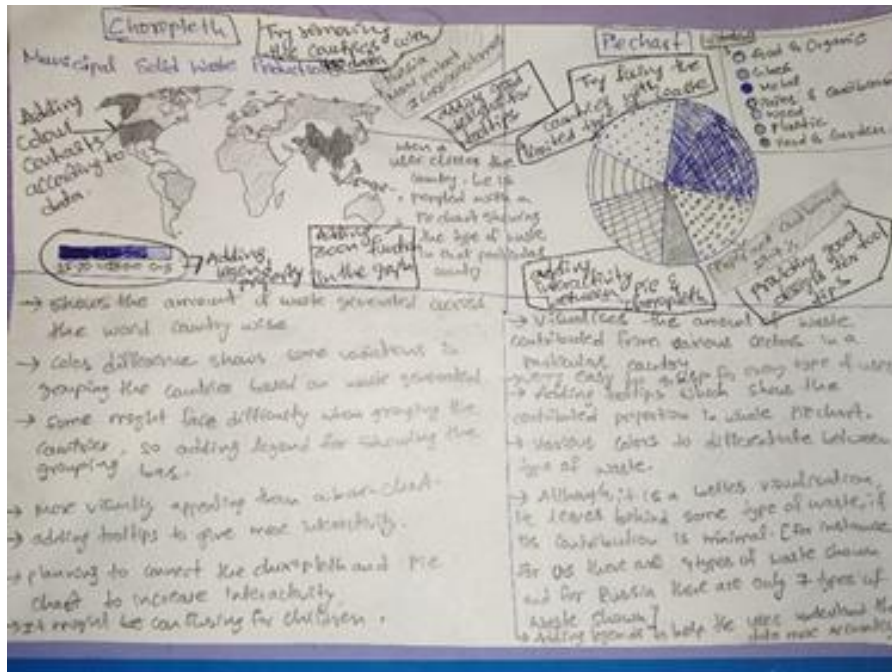 Choropleth
Try removing
the countries with
no data
Municipal Solid Waste Production
Russia
Adding
Colour
Contrasts
according to
data.
adding good
design for
tooltips
when a
user clicks the
country, he is
with a
Pie chart showing
the type of waste
in that particular
country
Adding
legend
property
Adding
zoom function
in the graph
→ shows the amount of waste generated across
the word country wise
→ color difference shows some variations in
grouping the countries based on waste generated
→ some might face difficulty when grouping the
countries, so adding legend for showing the
grouping
→ more visually appealing than a bar-chart.
→ adding tooltips to give more interactivity.
→ planning to connect the choropleth and pie
chart to increase interactivity
→ It might be confusing for children.
Piechart
Food & Organic
Glass
Metal
Paper & Cardboard
Wood
Plastic
Yard & Garden
Try the
countries with
adding
interactivity
between pie &
choropleth
Paper and Cardboard
Providing good
designs for tool
tips
→ Visualises the amount of waste
contributed from various sectors in a
particular country
very easy to for every type of user
→ Adding tooltips which show the
contributed proportion in whole Piechart.
→ Various colors to differentiate between
type of waste.
→ Although it is a better visualisation,
it leaves behind some type of waste, if
its contribution is minimal. [for instance
for US there are 9 types of waste shown
and for Russia there are only 7 types of
waste shown]
→ Adding legends to help the user understand the
data more